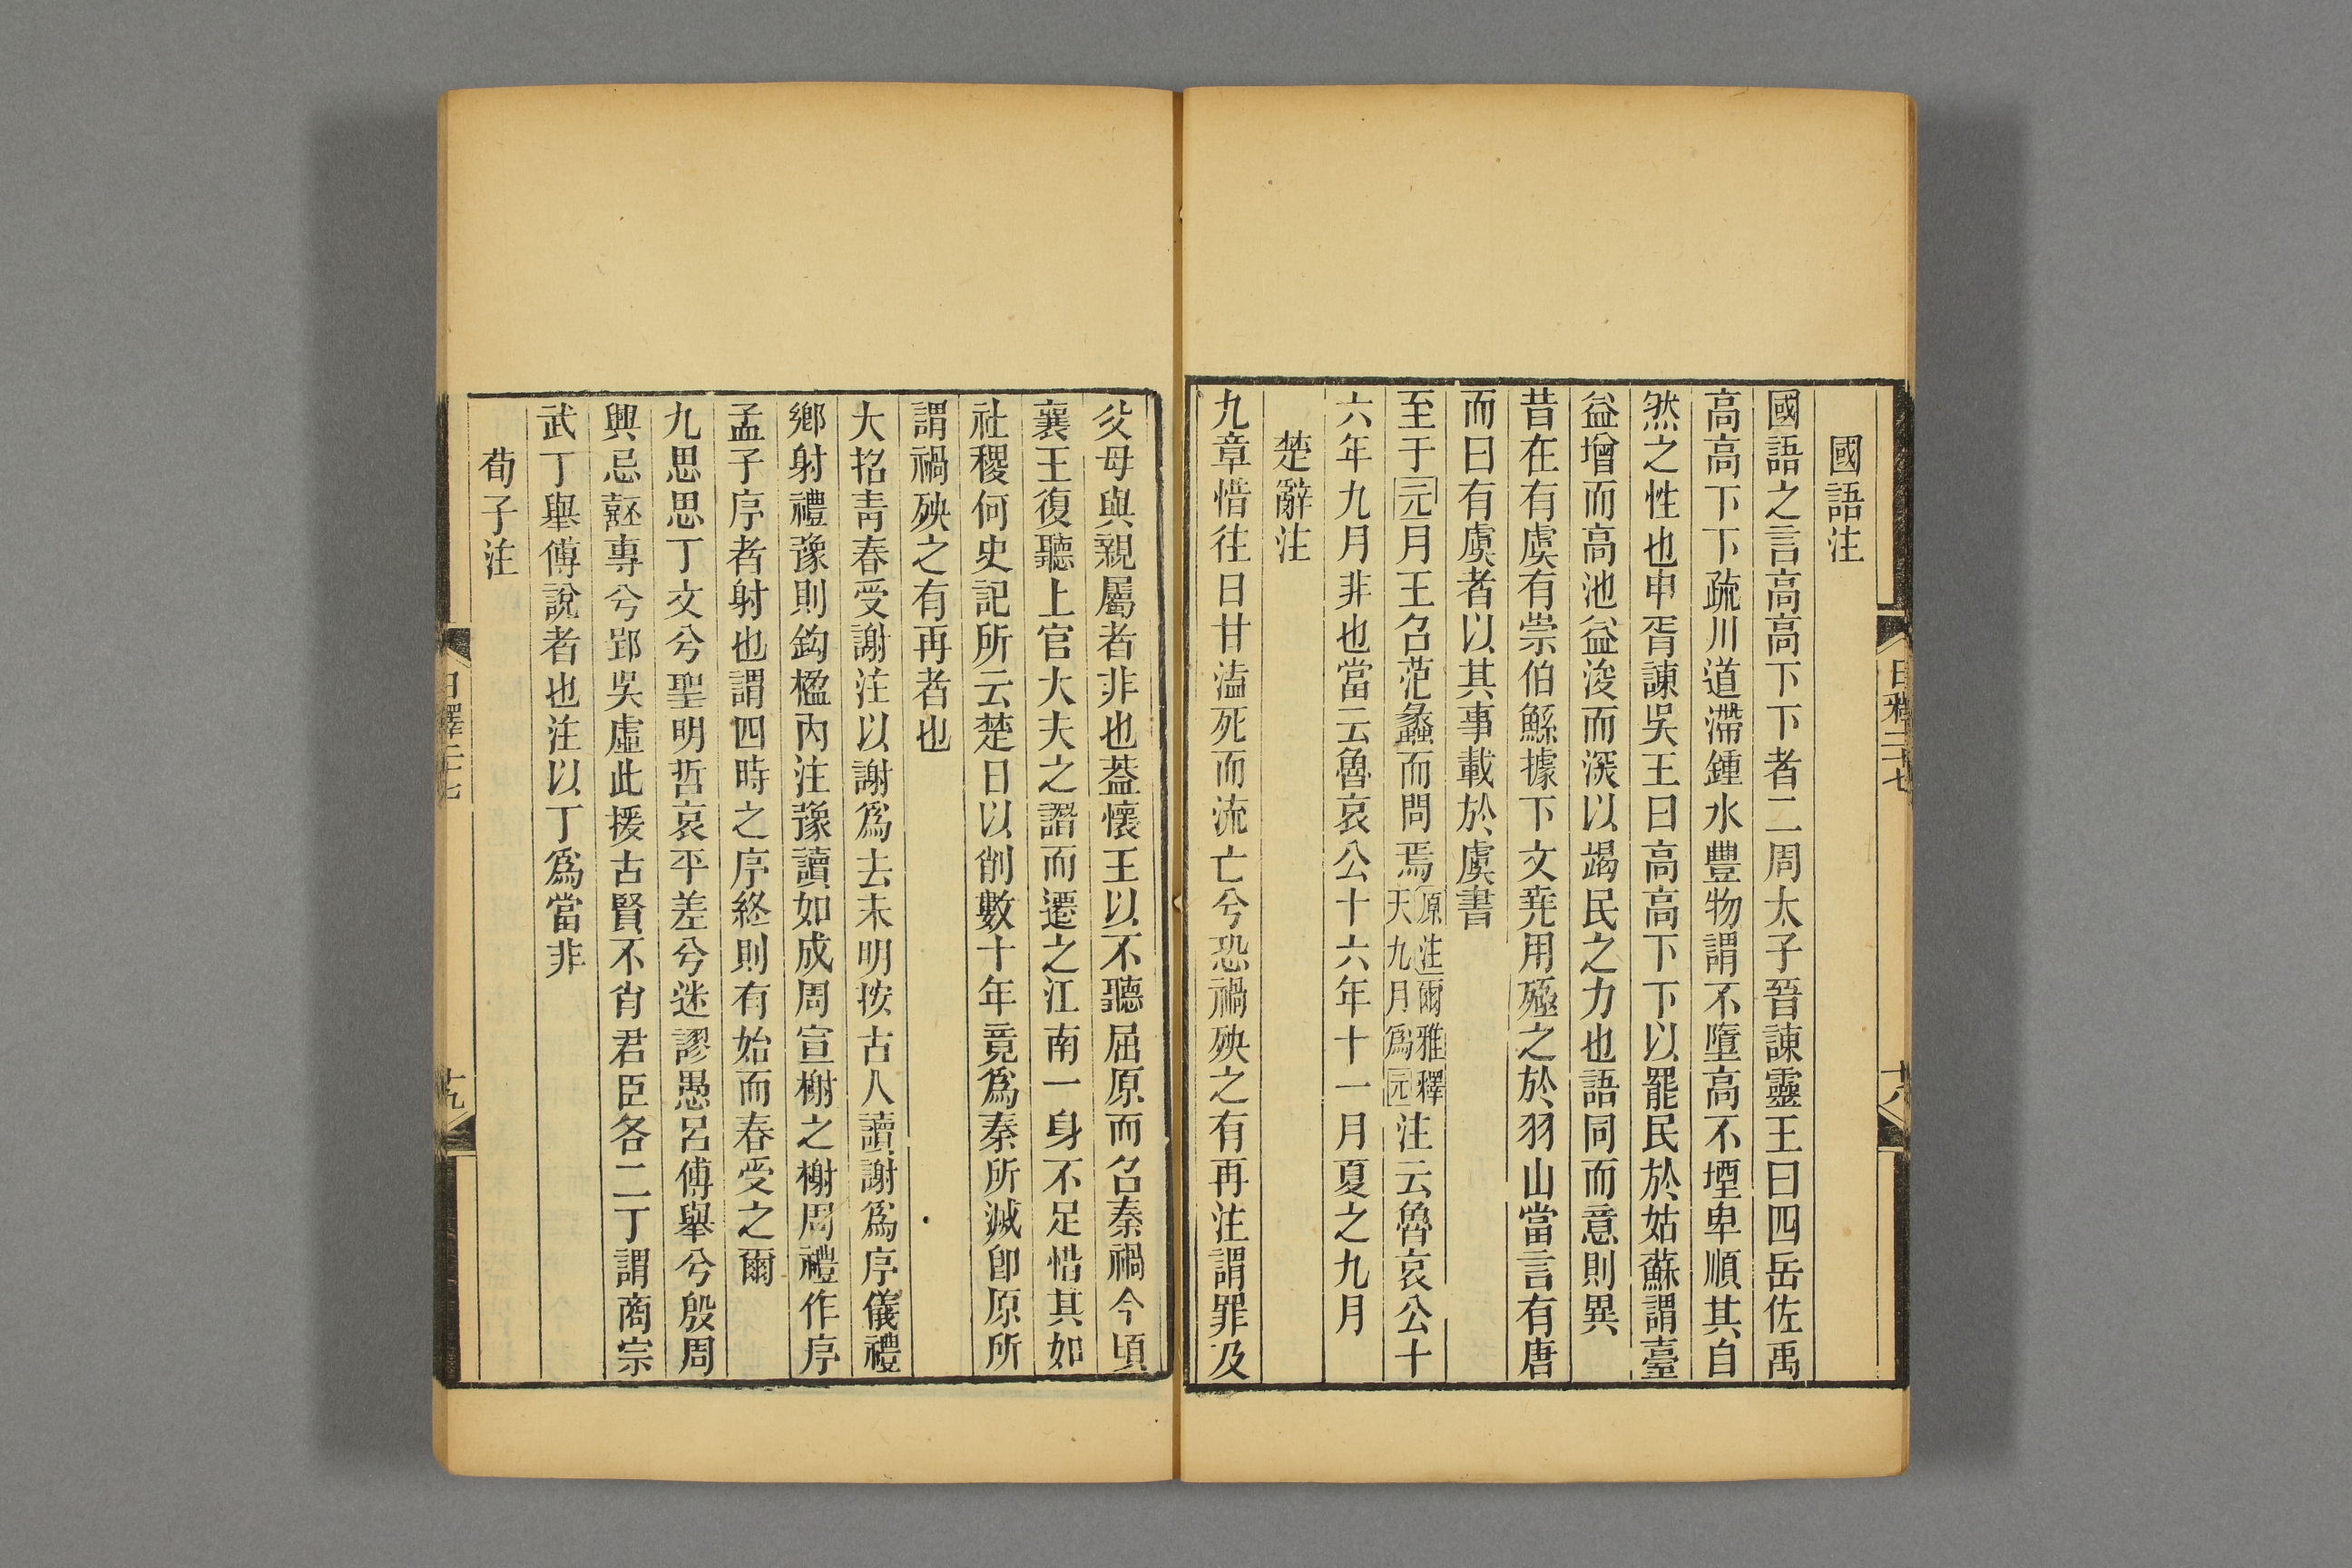 國語注
國語之言高高下下者二周太子晉諫靈王曰四岳佐禹
高高下下疏川道滯鍾水豐物謂不墮高不堙卑順其自
然之性也申胥諫吳王曰高高下下以罷民於姑蘇謂臺
益增而高池益浚而深以竭民之力也語同而意則異
昔在有虞有崇伯鯀據下文堯用殛之於羽山當言有唐
而曰有虞者以其事載於虞書
至于元月王召范蠡而問焉原注爾雅釋天九月爲元注云魯哀公十
六年九月非也當云魯哀公十六年十一月夏之九月
楚辭注
九章惜往日甘溘死而流亡兮恐禍殃之有再注謂罪及
父母與親屬者非也葢懷王以不聽屈原而召秦禍今頃
襄王復聽上官大夫之譖而遷之江南一身不足惜其如
社稷何史記所云楚日以削數十年竟爲秦所滅卽原所
謂禍殃之有再者也
大招青春受謝注以謝爲去未明按古人讀謝爲序儀禮
鄉射禮豫則鈎楹內注豫讀如成周宣榭之榭周禮作序
孟子序者射也謂四時之序終則有始而春受之爾
九思思丁文兮聖明哲哀平差兮迷謬愚呂傅舉兮殷周
興忌嚭專兮郢吳虛此援古賢不肖君臣各二丁謂商宗
武丁舉傅說者也注以丁爲當非
荀子注
日釋二十七
十八
十九